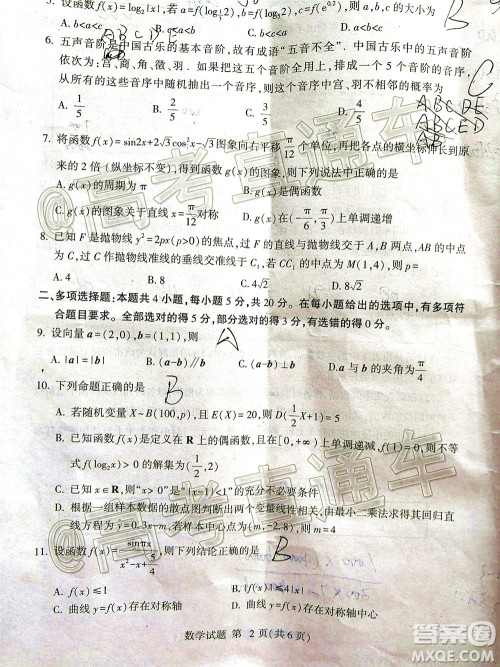 5. 设函数f(x)=log₂|x|,若a=f( b=f( c=f(e^0.2),则a,b,c的大小为
A. b<a<c B. a<c<b
6. 五声音阶是中国古乐的基本音阶,故有成语“五音不全”.中国古乐中的五声音阶
依次为:宫、商、角、徵、羽.如果把这五个音阶全用上,排成一个5个音阶的音序,
从所有的这些音序中随机抽出一个音序,则这个音序中宫、羽不相邻的概率为
A. 1/5 B. 2/5 C. 3/5 D. 4/5
A B C D E
C
ABCDE
ABCED
AB
7. 将函数f(x)=sin2x+2√3cos²x-√3图象向右平移π/12个单位,再把各点的横坐标伸长到原
来的2倍(纵坐标不变),得到函数g(x)的图象,则下列说法中正确的是
A. g(x)的周期为π B. g(x)是偶函数
C. g(x)的图象关于直线x=π/12对称 D. g(x)在(-π/6,π/3)上单调递增
8. 已知F是抛物线y²=2px(p>0)的焦点,过F的直线与抛物线交于A,B两点,AB的中点为
C,过C作抛物线准线的垂线交准线于C₁,若CC₁的中点为M(1,4),则p=
A. 4 B. 8 C. 4√2 D. 8√2
二、多项选择题:本题共4小题,每小题5分,共20分。在每小题给出的选项中,有多项
符合题目要求。全部选对的得5分,部分选对的得3分,有选错的得0分。
9. 设向量a=(2,0),b=(1,1),则 A
A. |a|=|b| B. (a-b)∥b C. (a-b)⊥b D. a与b的夹角为π/4
10. 下列命题正确的是 B
A. 若随机变量X~B(100,p),且E(X)=20,则D(1/2X+1)=5
B. 已知函数f(x)是定义在R上的偶函数,且在[0,+∞)上单调递减,f(1)=0,则不等
式f(log₂x)>0的解集为(1/2,2)
C. 已知x∈R,则“x>0”是“|x-1|<1”的充分不必要条件
D. 根据一组样本数据的散点图判断出两个变量线性相关,由最小二乘法求得其回归直
线方程为ŷ=0.3x-m,若样本中心点为(m,-2.8),则m=4
11. 设函数f(x)=sinπx/(x²-x+5/4),则下列结论正确的是 B
A. f(x)≤1 B. |f(x)|≤4|x|
C. 曲线y=f(x)存在对称轴 D. 曲线y=f(x)存在对称轴中心
数学试题 第 2 页(共 6 页)
@高考直通车
@高考直通车
作业帮
MXQE.COM